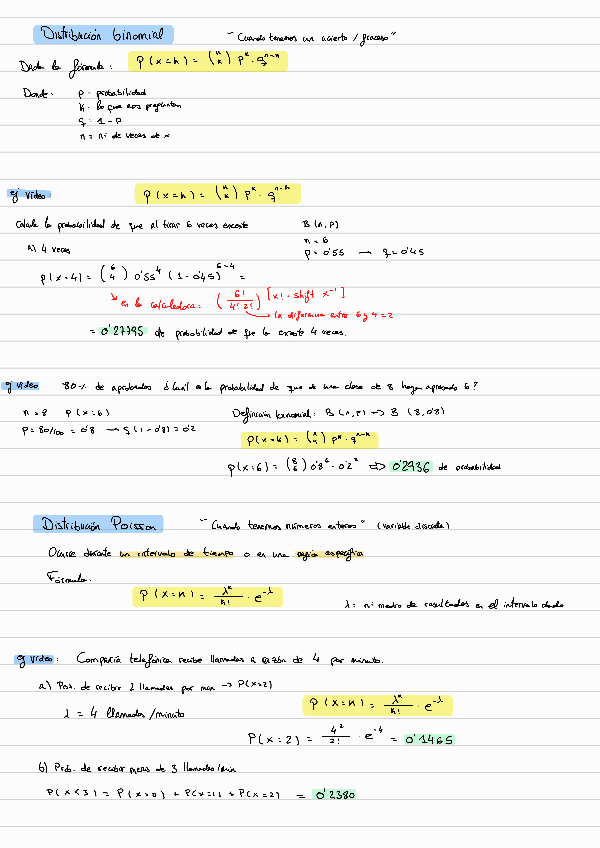 Distribución binomial "Cuando tenemos un acierto / fracaso"
Dada la fórmula: P(x=k) = (n k) p^k · q^n-k
Donde: p = probabilidad
k = lo que nos preguntan
q = 1 - p
n = nº de veces de x
ej video: P(x=k) = (n k) p^k · q^n-k
Calcula la probabilidad de que al tirar 6 veces enceste B(n,p)
n = 6
A) 4 veces p = 0'55 → q = 0'45
p(x=4) = (6 4) 0'55^4 (1-0'45)^6-4 =
↘ en la calculadora: (6! / 4! 2!) [x! = shift x^-1]
↳ la diferencia entre 6 y 4 = 2
= 0'27795 de probabilidad de que lo enceste 4 veces.
ej video 80% de aprobados ¿Cuál es la probabilidad de que de una clase de 8 hayan aprobado 6?
n = 8 p(x=6) Definición binomial: B(n,p) → B (8, 0'8)
p = 80/100 = 0'8 → q (1-0'8) = 0'2
P(x=k) = (n k) p^k · q^n-k
p(x=6) = (8 6) 0'8^6 · 0'2^2 ⇒ 0'2936 de probabilidad
Distribución Poisson "Cuando tenemos números enteros" (variable discreta)
Ocurre durante un intervalo de tiempo o en una región específica
Fórmula:
P(x=k) = λ^k / k! · e^-λ λ = nº medio de resultados en el intervalo dado
ej video: Compañía telefónica recibe llamadas a razón de 4 por minuto.
a) Pos. de recibir 2 llamadas por min → P(x=2)
λ = 4 llamadas /minuto P(x=k) = λ^k / k! · e^-λ
P(x=2) = 4^2 / 2! · e^-4 = 0'1465
b) Prob. de recibir menos de 3 llamadas/min
P(x<3) = P(x=0) + P(x=1) + P(x=2) = 0'2380